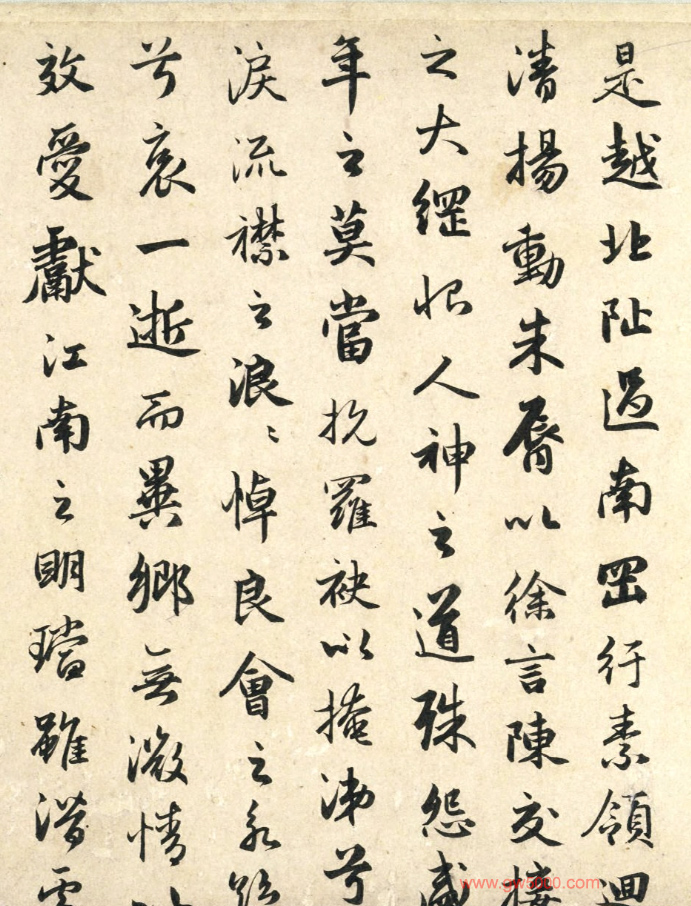 是越北阯過南罡行素領迴
清揚動朱脣以徐言陳交接
之大綱恨人神之道殊怨盛
年之莫當抗羅袂以掩涕兮
淚流襟之浪〻悼良會之永
兮哀一逝而異鄉無微情
效愛獻江南之明璫雖潛
www.gw5000.com